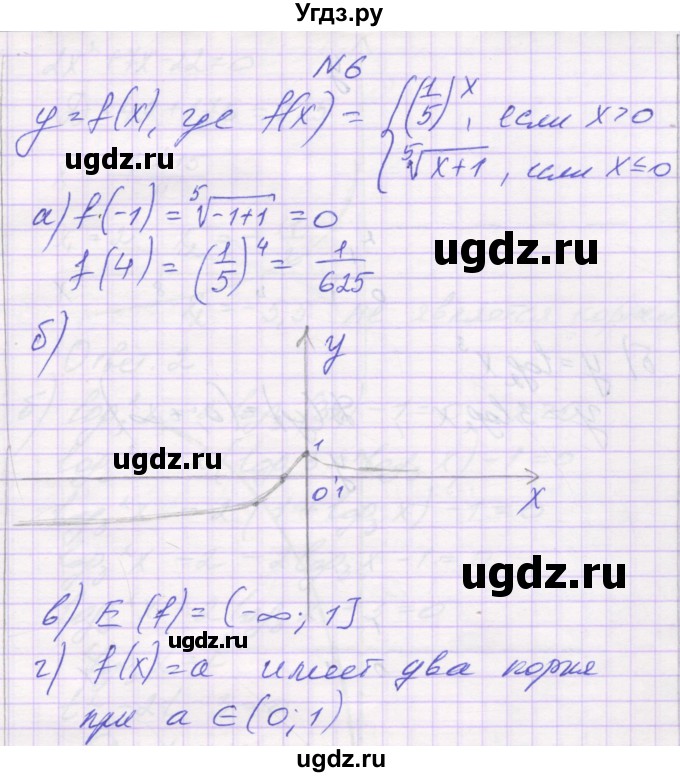 Угдз.ру
N6
y=f(x), где f(x) = { (1/5)^x, если x>0
⁵√(x+1), если x≤0
ugdz.ru
а) f(-1) = ⁵√(-1+1) = 0
ugdz.ru
f(4) = (1/5)^4 = 1/625
ugdz.ru
б)
y
1
ugdz.ru
0 1
x
ugdz.ru
ugdz.ru
в) E(f) = (-∞; 1]
ugdz.ru
г) f(x)=a имеет два корня
при a ∈ (0; 1)
ugdz.ru
ugdz.ru